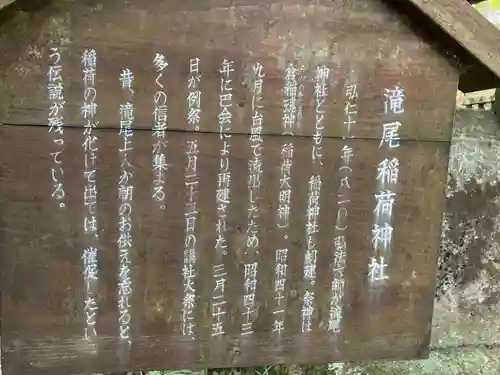 滝尾稲荷神社
弘仁十一年(八二〇)弘法大師が滝尾
神社とともに、稲荷神社も創建。祭神は
倉稲魂神(稲荷大明神)。昭和四十一年
九月に台風で流出したため、昭和四十三
年に巴会により再建された。三月二十五
日が例祭。五月二十三日の講社大祭には、
多くの信者が集まる。
昔、滝尾上人が朝のお供えを忘れると、
稲荷の神が化けて出ては、催促したとい
う伝説が残っている。